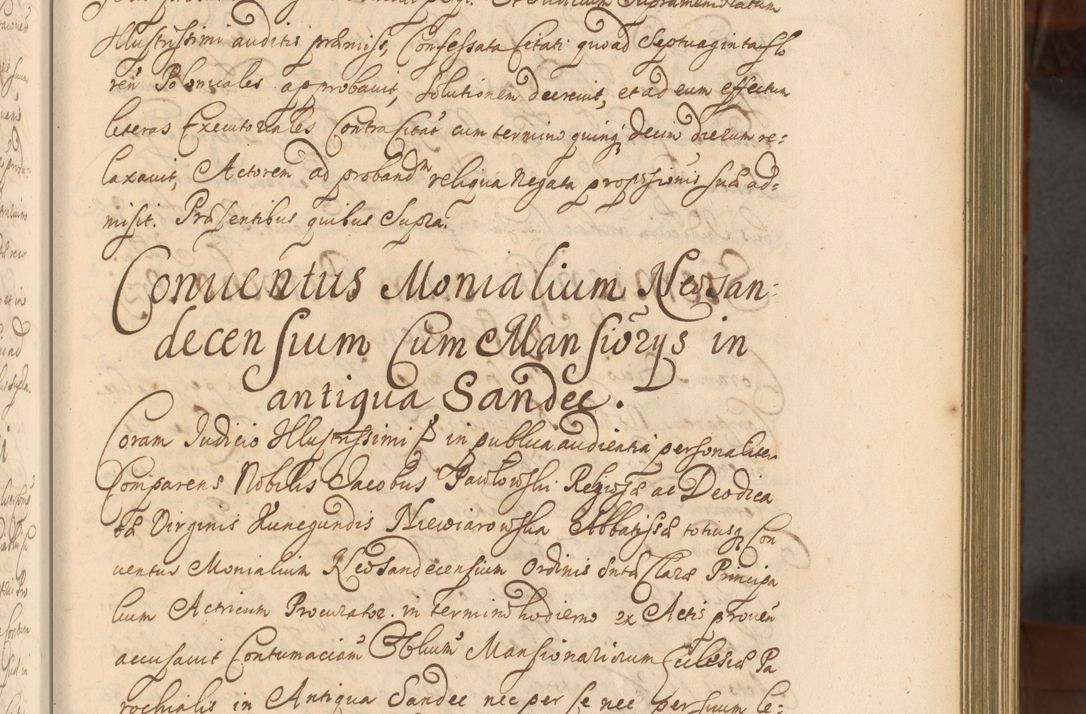 Illustrissimi auditis præmiss, Confessata Citati quoad Septuaginta flo
ren Polonicales approbavit, solutionem decrevit, et ad eum effectum
literas Executoriales Contra Citat cum termino quinq decim dierum re:
laxavit, Actorem ad proband^m reliqua Negata propossionis suæ ad:
misit. Præsentibus quibus Supra.
Conventus Monialium Neosan:
decensium Cum Mansiorys in
antiqua Sandec.
Coram Judicio Illustrissimi in publica audientia personaliter
Comparens Nobilis Jacobus Pawłowski Religiosæ ac Deodica
tæ Virginis Kunegundis Niewiarowska Abbatissæ totiusq Con
ventus Monialium Neosandecensium Ordinis Sntæ Claræ Principa
lium Actricum Procurator in termino hodierno ex Actis proven
accusavit Contumaciam Mansionariorum Ecclesiæ Pa
rochialis in Antiqua Sandec nec per se nec per suum le: